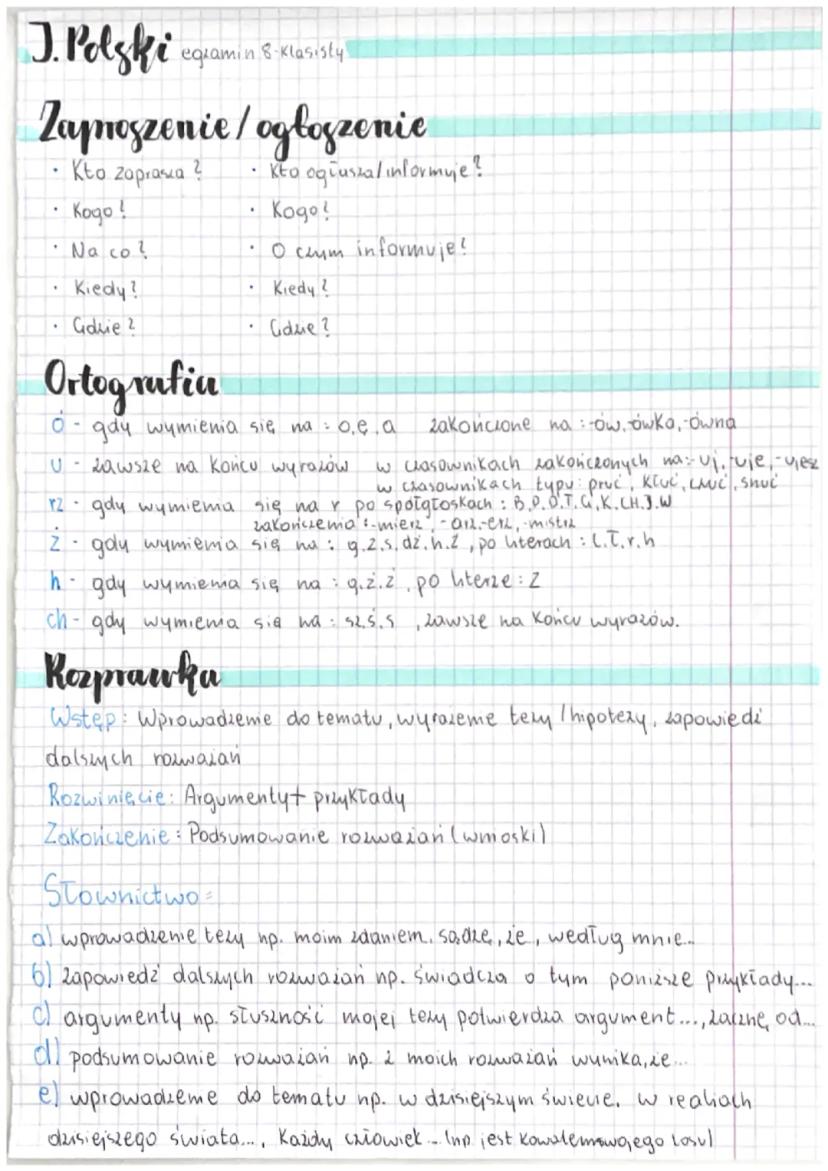 J. Polski egzamin 8-klasisty
Zaproszenie/ogłoszenie
· Kto zaprasza? · Kto ogłasza/informuje?
· Kogo? · Kogo?
· Na co? · O czym informuje?
· Kiedy? · Kiedy?
· Gdzie? · Gdzie?
Ortografia
Ó - gdy wymienia się na : o,e,a zakończone na :-ów,-ówka,-ówna
U - zawsze na końcu wyrazów w czasownikach zakończonych na:-uj,-uje,-ujesz
w czasownikach typu: pruć, kłuć, czuć, snuć
rz - gdy wymienia się na r po spółgłoskach : B,P,D,T,G,K,CH,J,W
zakończenia :-mierz, -arz,-erz,-mistrz
ż - gdy wymienia się na : g,z,s,dz,h,ź, po literach : l,ł,r,h
h - gdy wymienia się na : g,ż,z, po literze : Z
ch - gdy wymienia się na : sz,ś,s , zawsze na końcu wyrazów.
Rozprawka
Wstęp: Wprowadzenie do tematu, wyrażenie tezy/hipotezy, zapowiedź
dalszych rozważań
Rozwinięcie: Argumenty+ przykłady
Zakończenie: Podsumowanie rozważań (wnioski)
Słownictwo:
a) wprowadzenie tezy np. moim zdaniem, sądzę, że, według mnie...
b) zapowiedź dalszych rozważań np. świadczą o tym poniższe przykłady...
c) argumenty np. słuszność mojej tezy potwierdza argument..., zacznę od...
d) podsumowanie rozważań np. z moich rozważań wynika, że...
e) wprowadzenie do tematu np. w dzisiejszym świecie, w realiach
dzisiejszego świata..., Każdy człowiek... (np. jest kowalem swojego losu)